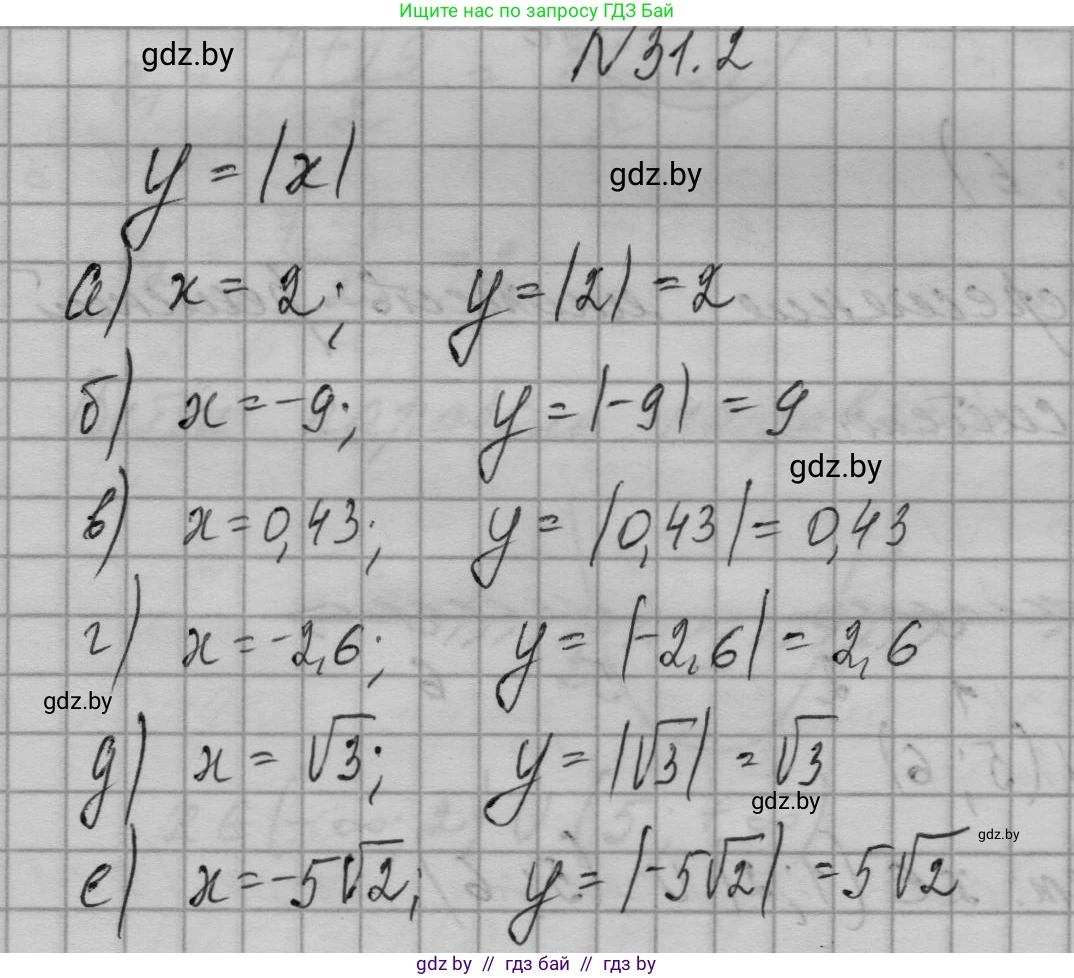 Ищите нас по запросу ГДЗ Бай
gdz.by
N 31.2
y = |x|
gdz.by
а) x = 2; y = |2| = 2
б) x = -9; y = |-9| = 9
gdz.by
в) x = 0,43; y = |0,43| = 0,43
г) x = -2,6; y = |-2,6| = 2,6
gdz.by
д) x = √3; y = |√3| = √3
gdz.by
gdz.by
е) x = -5√2; y = |-5√2| = 5√2
gdz by // гдз бай // гдз by